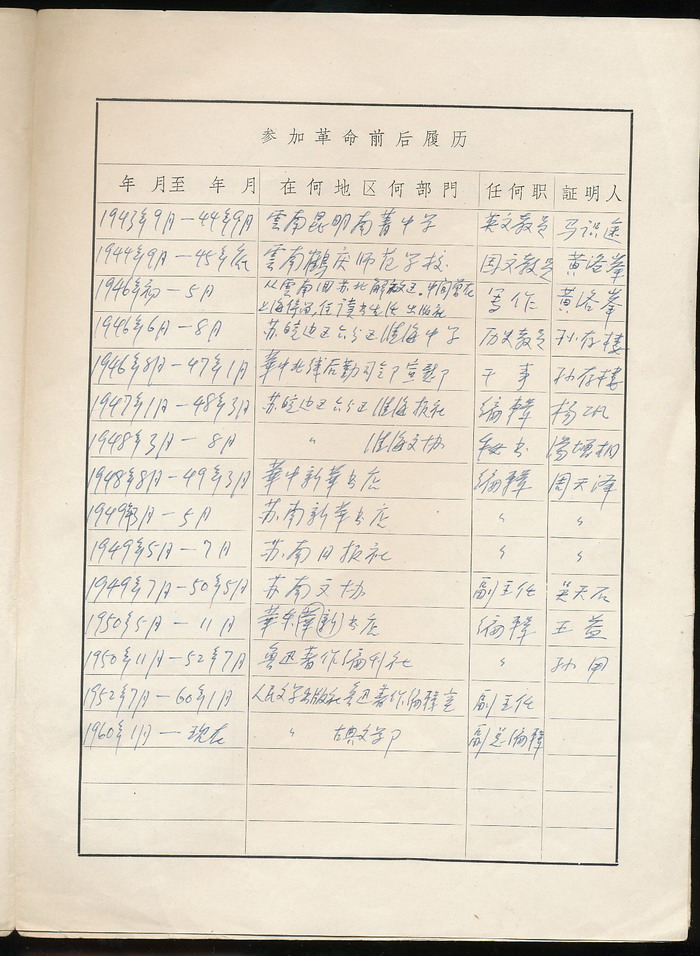 参加革命前后履历
年 月至 年 月 在何地区何部門 任何职 証明人
1943年9月—44年9月 雲南昆明南菁中学 英文教员 马识途
1944年9月—45年底 雲南鶴庆师范学校 国文教员 黄洛峯
1946年初—5月 从雲南回苏北解放区，中间曾在
上海停留，任读书出版社 写作 黄洛峯
1946年6月—8月 苏皖边区六分区淮海中学 历史教员 孙存楼
1946年8月—47年1月 華中北线后勤司令部宣慰部 干事 孙存楼
1947年1月—48年3月 苏皖边区六分区淮海报社 编輯 杨巩
1948年3月—8月 〃 淮海文协 秘书 冯增
1948年8月—49年3月 華中新華书店 编輯 周天泽
1949年3月—5月 苏南新華书店 〃 〃
1949年5月—7月 苏南日报社 〃 〃
1949年7月—50年5月 苏南文协 副主任 吴天石
1950年5月—11月 華东華新书店 编輯 王益
1950年11月—52年7月 魯迅著作编刊社 〃 孙用
1952年7月—60年1月 人民文学出版社魯迅著作编輯室 副主任
1960年1月—现在 〃 古典文学部 副总编輯